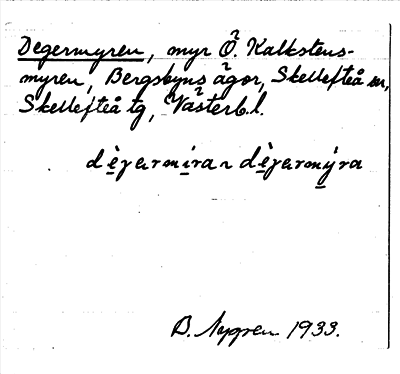 Degermyren, myr Ö. Kalkstens-
myren, Bergsbyns ägor, Skellefteå sn,
Skellefteå tg, Västerb.l.
dèγarmira ~ dèγarmýra
B. Nygren 1933.